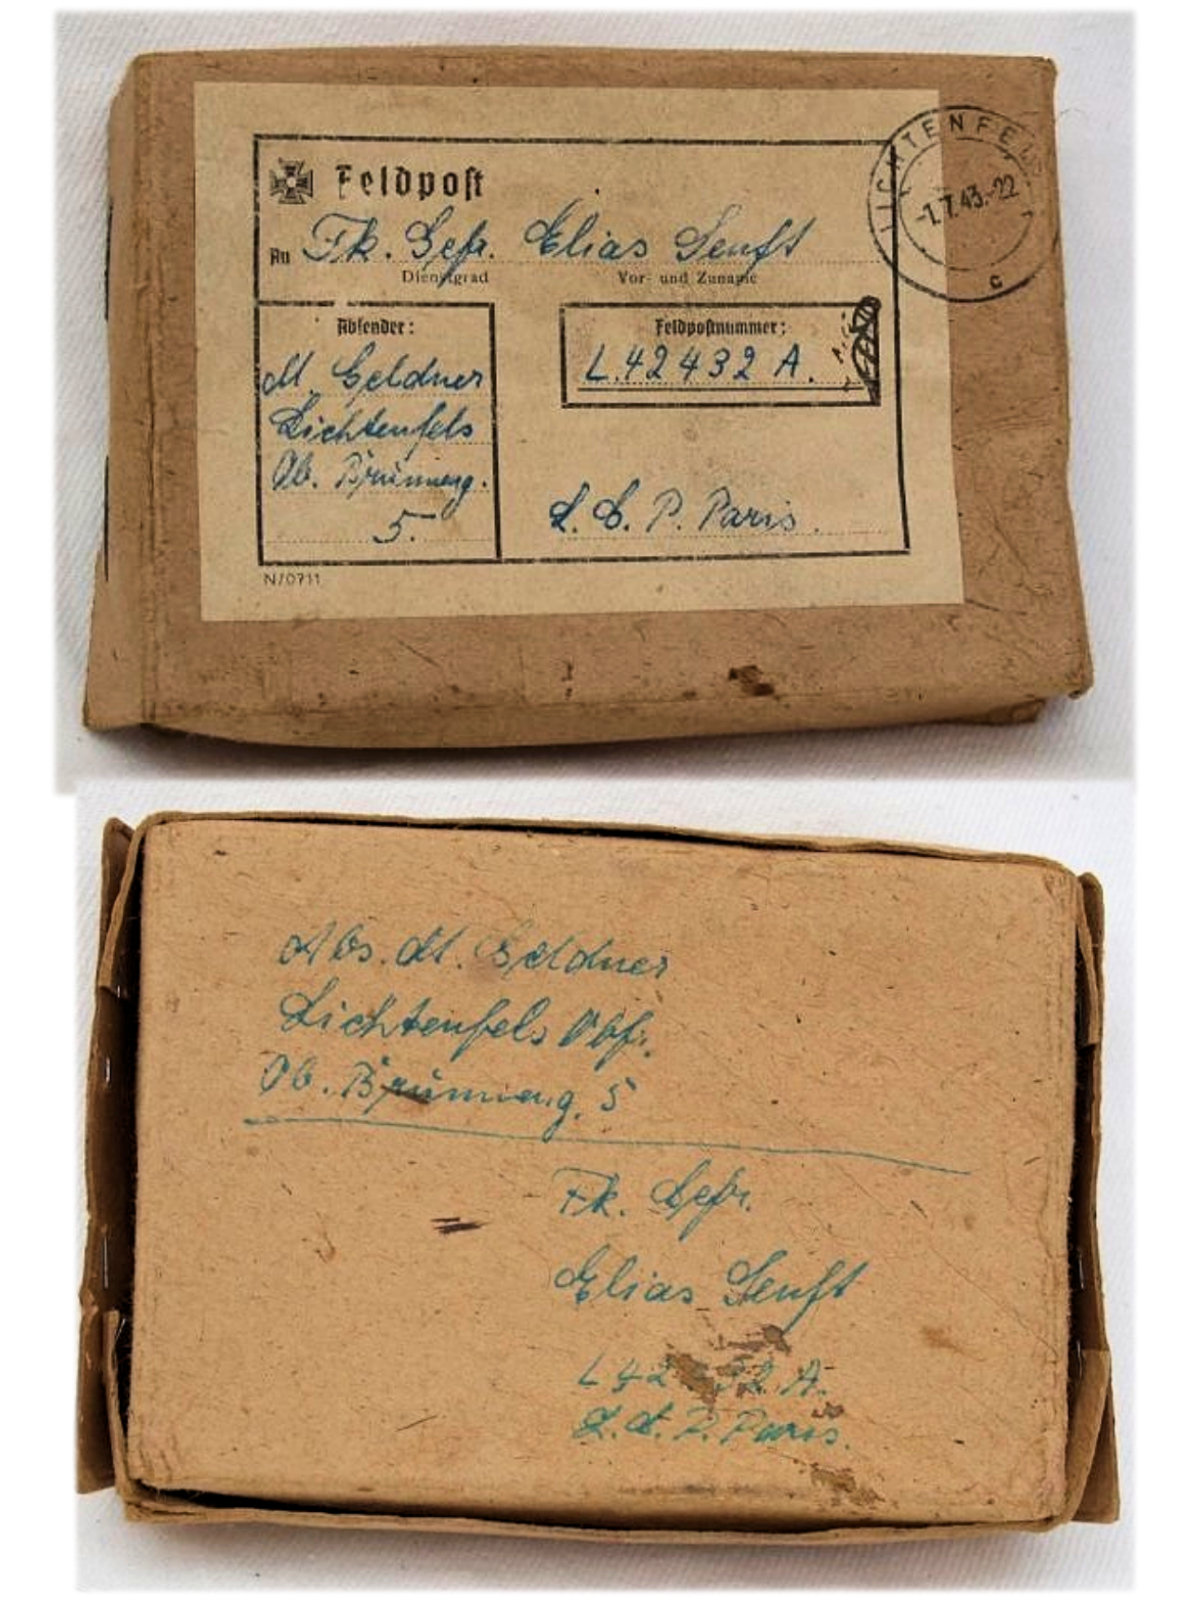 Feldpost
An Fk. Gefr. Elias Senft
Dienstgrad Vor- und Zuname
LICHTENFELS
-1.7.43.-22
c
Absender:
M. Geldner
Lichtenfels
Ob. Brunneng.
5.
Feldpostnummer:
L.42432 A.
L. G. P. Paris.
N/0711
Abs. M. Geldner
Lichtenfels Obf.
Ob. Brunneng. 5
Fk. Gefr.
Elias Senft
L 42 32 A.
L. G. P. Paris.